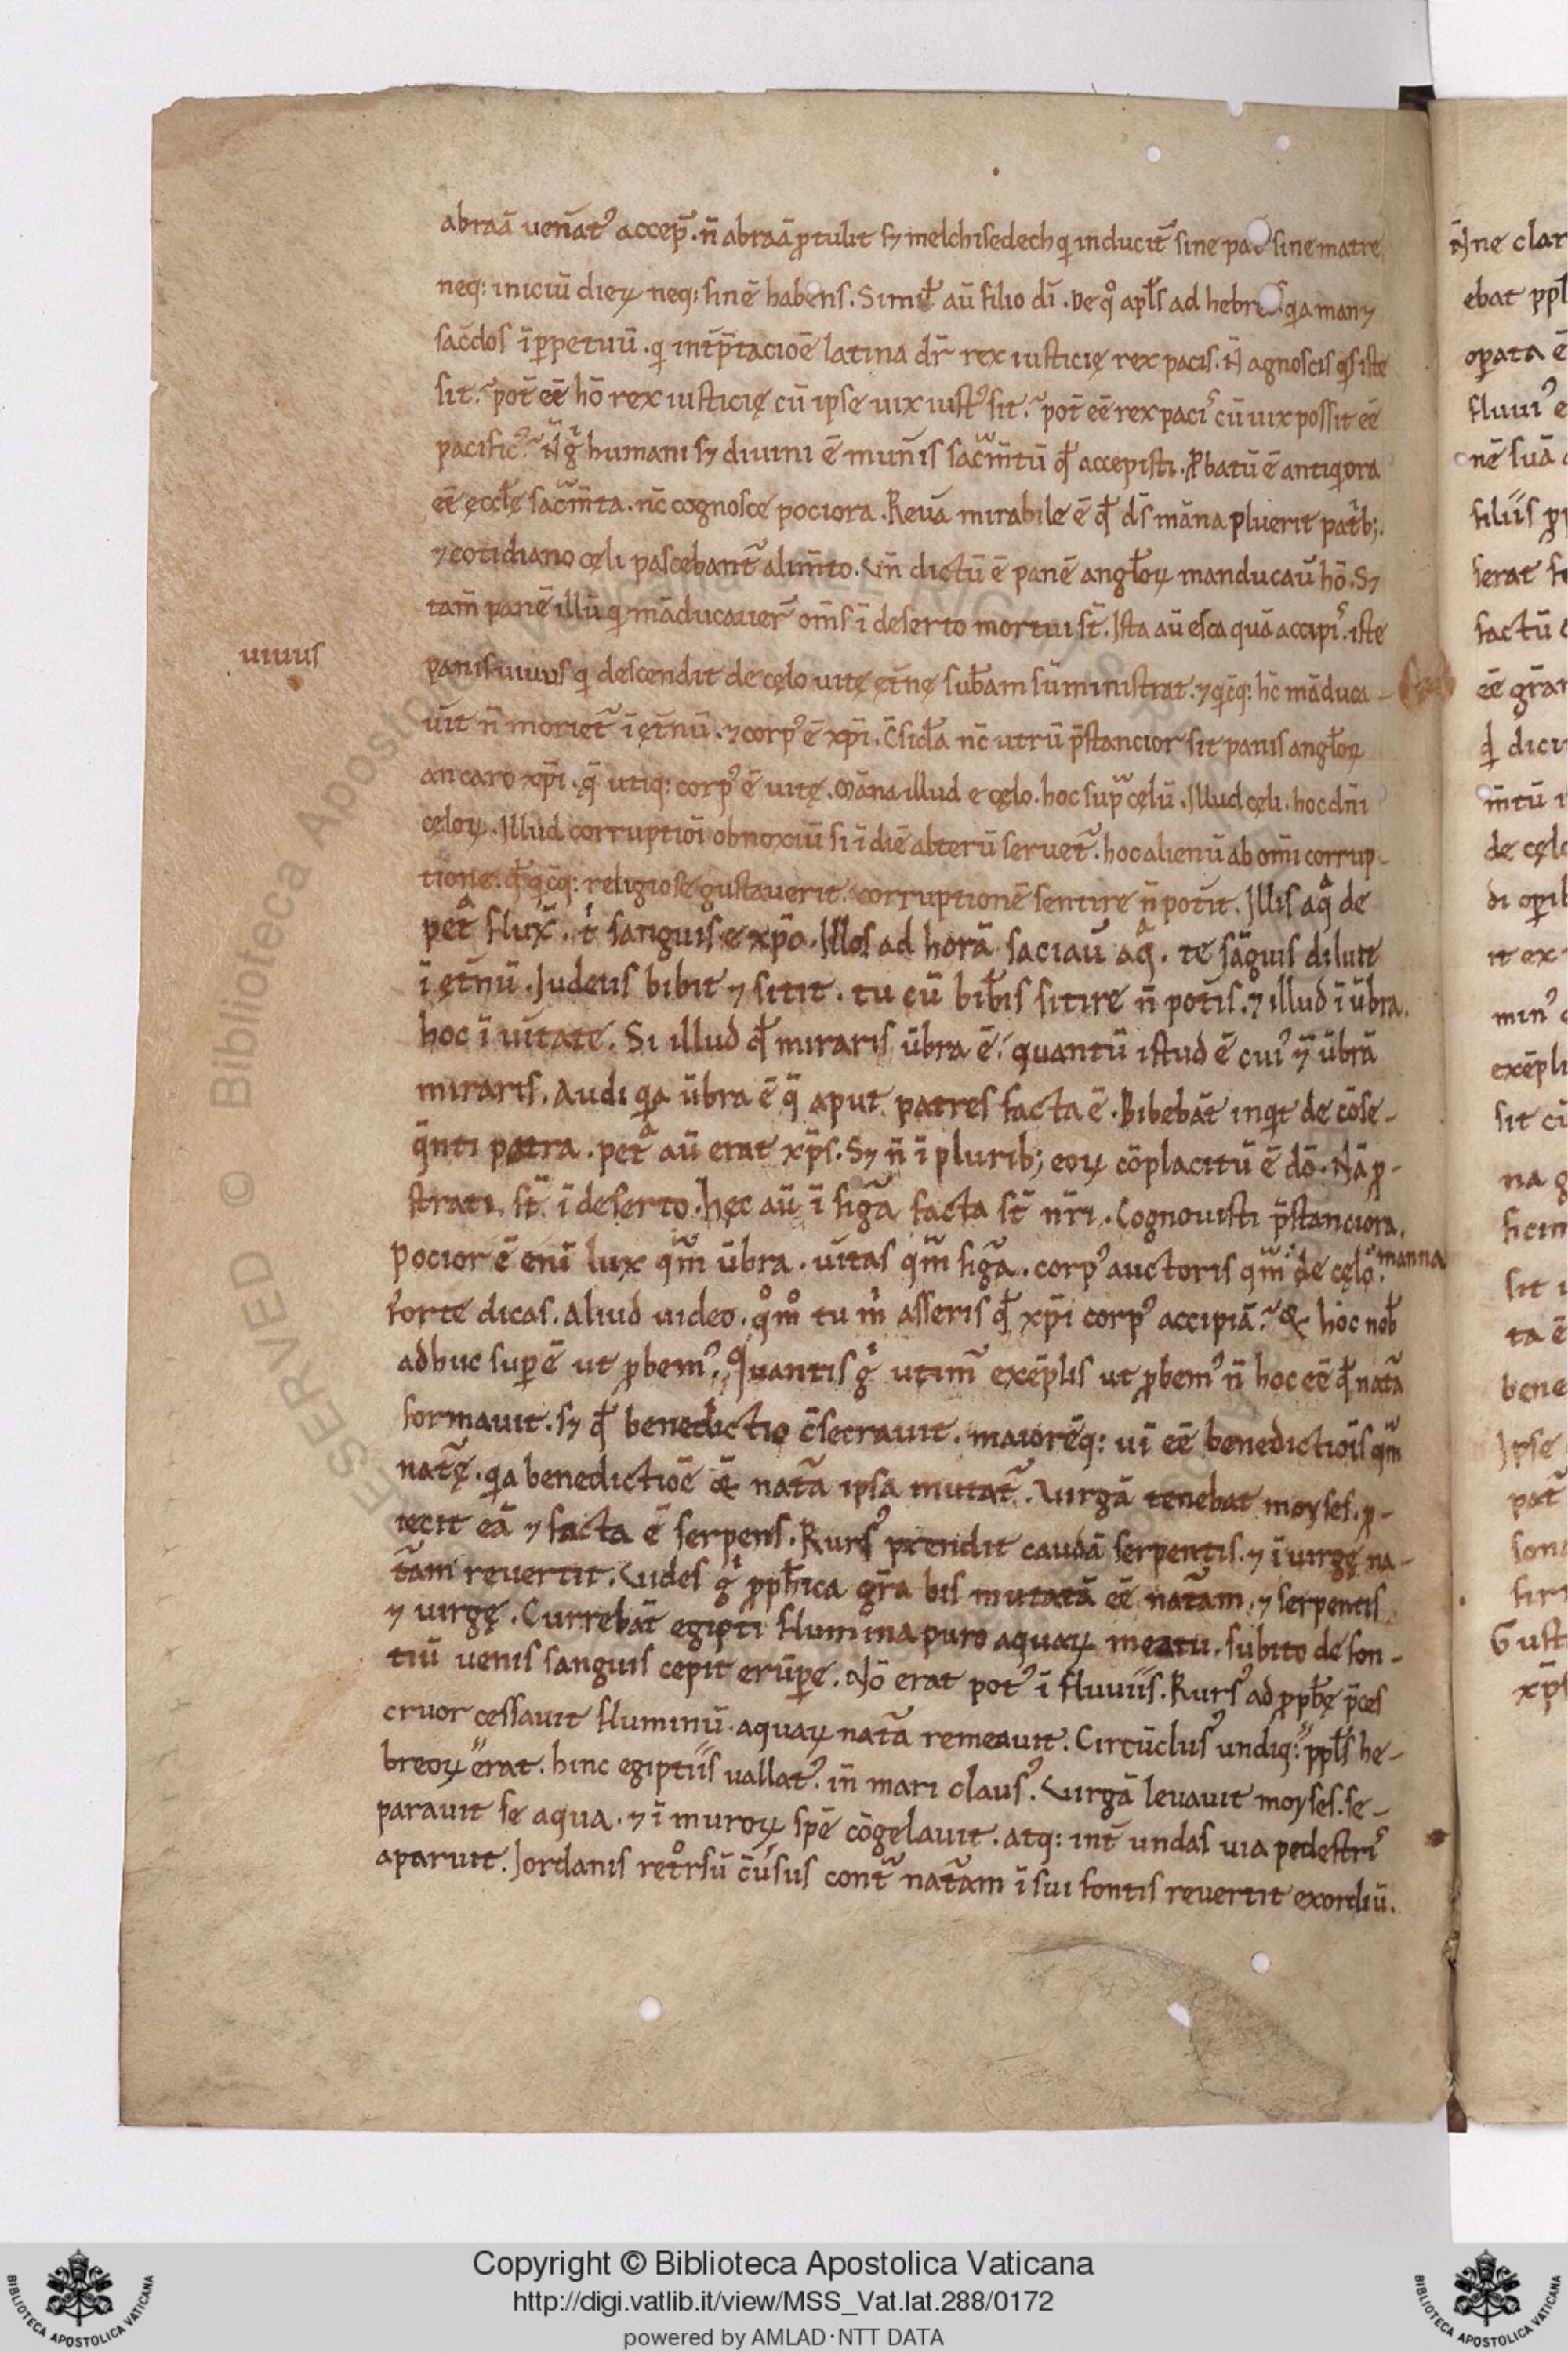 abraā uenat᾽ accep̄. n̄ abraā ꝓtulit sꝫ melchisedech qͥ inducit̄ sine pat sine matre
neq: iniciū dieꝝ neq: finē habens. Simil̄ au̅ filio dī. De qͦ apl̄s ad hebre qͥa manꝫ
sac̄dos ī ꝑpetuū. qͥ int̄p̄tacioē latina dr̄ rex iusticię rex pacis. N̄ agnoscis qͥs iste
sit. pot̄ ee̅ hō rex iusticię cū ipse uix iust᾽ sit. pot̄ ee̅ rex paci᾽ cū uix possit ee̅
pacific᾽. N̄ gͥ humani sꝫ diuini ē mun̄is sac̄m̄tū qd̄ accepisti. ꝓbatū ē antiqͥora
ee̅ ęccl̄ę sac̄m̄ta. nc̄ cognosce pociora. Reuā mirabile ē qd̄ ds̄ māna pluerit patͥb;.
⁊ cotidiano cęli pascebant̄ alim̄to. Vn̄ dictū ē panē angl̄oꝝ manducau̅ hō. Sꝫ
tam̄ panē illū qͥ māducauer̄ om̄s ī deserto mortui st̄. Ista au̅ esca quā accipi᾽. iste
uiuus
panis uiuus qͥ descendit de cęlo uitę ęt̄nę sub̄am sūministrat. ⁊ qͥcq: hc̄ māduca-
u̅it n̄ moriet̄ ī ęt̄nū. ⁊ corp᾽ ē xp̄i. C̄sid̄a nc̄ utrū p̄stancior sit panis angl̄oꝝ
an caro xp̄i. q̄ utiq: corp᾽ ē uitę. Māna illud e cęlo. hoc supͣ cęlū. Illud cęli. hoc dn̄i
cęloꝝ. Illud corruptiōi obnoxiū si ī diē alterū seruet̄. hoc alienū ab om̄i corrup-
tione. qd̄ qͥcq: religiose gustauerit. corruptionē sentire n̄ pot̄it. Illis aqͣ de
petͣ flux̄. tͥ sanguis e xp̄o. Illos ad horā saciau̅ aqͣ. te sāguis diluit
ī ęt̄nū. Iudeus bibit ⁊ sitit. tu cū bib̄is sitire n̄ pot̄is. ⁊ illud ī ūbra.
hoc ī u̅itate. Si illud qd̄ miraris ūbra ē. quantū istud ē cui᾽ ⁊ ūbrā
miraris. Audi qͥa ūbra ē q̄ aput patres facta ē. Bibebāt inqͥt de cōse-
q̄nti petra. petͣ au̅ erat xp̄s. Sꝫ n̄ ī plurib; eoꝝ cōplacitū ē dō. Nā ꝓ-
strati st̄ ī deserto. hęc au̅ ī figͣa facta st̄ nr̄i. Cognouisti p̄stanciora.
Pocior ē enī lux qͣm ūbra. u̅itas qͣm figͣa. corp᾽ auctoris qͣm de cęlo manna.
Forte dicas. Aliud uideo. qͦmͦ tu mͥ asseris qd̄ xp̄i corp᾽ accipiā. & hoc nob̄
adhuc supē ut ꝓbem᾽. Quantis gͥ utim᾽ exēplis ut ꝓbem᾽ n̄ hoc ee̅ qd̄ natͣa
formauit. sꝫ qd̄ benedictio c̄secrauit. maiorēq: uī ee̅ benedictiōis qͣm
natͣę. qͥa benedictiōe & natͣa ipsa mutat̄. Virgā tenebat moyses. ꝓ-
iecit eā ⁊ facta ē serpens. Rurs᾽ prendit caudā serpentis. ⁊ ī uirgę na-
t̄am reuertit. Vides gͥ ꝓph̄ica gr̄a bis mutatā ee̅ nat̄am. ⁊ serpentis
⁊ uirgę. Currebāt egipti flumina puro aquaꝝ meatu. subito de fon-
tiū uenis sanguis cepit erūpe. Nō erat pot᾽ ī fluuiis. Rurs᾽ ad ꝓph̄ę p̄ces
cruor cessauit fluminū. aquaꝝ natͣa remeauit. Circūclus᾽ undiq: ppl̄s he-
breoꝝ erat. hinc egiptiis uallat᾽. in̄ mari claus᾽. Virgā leuauit moyses. se-
parauit se aqua. ⁊ ī muroꝝ spē cōgelauit. atq: int̄ undas uia pedestri᾽
aparuit. Iordanis retͦrsū cūsus contͣ natͣam ī sui fontis reuertit exordiū.
N̄ne clar
ebat ppl
oꝑata ē
fluui᾽ e
nē suā
filiis
serat
factū
ee̅ grār
qd̄ dici
m̄tū
de cęlo
di oꝑib
it ex
min᾽
exēpli
sit cū
na
ficim
sit
ta ē
bene
Ipse
pat̄
sona
firi
Gust
xp̄s
© Biblioteca Apostolica Vaticana ALL RIGHTS RESERVED
Copyright © Biblioteca Apostolica Vaticana
http://digi.vatlib.it/view/MSS_Vat.lat.288/0172
powered by AMLAD·NTT DATA
BIBLIOTECA APOSTOLICA VATICANA
BIBLIOTECA APOSTOLICA VATICANA